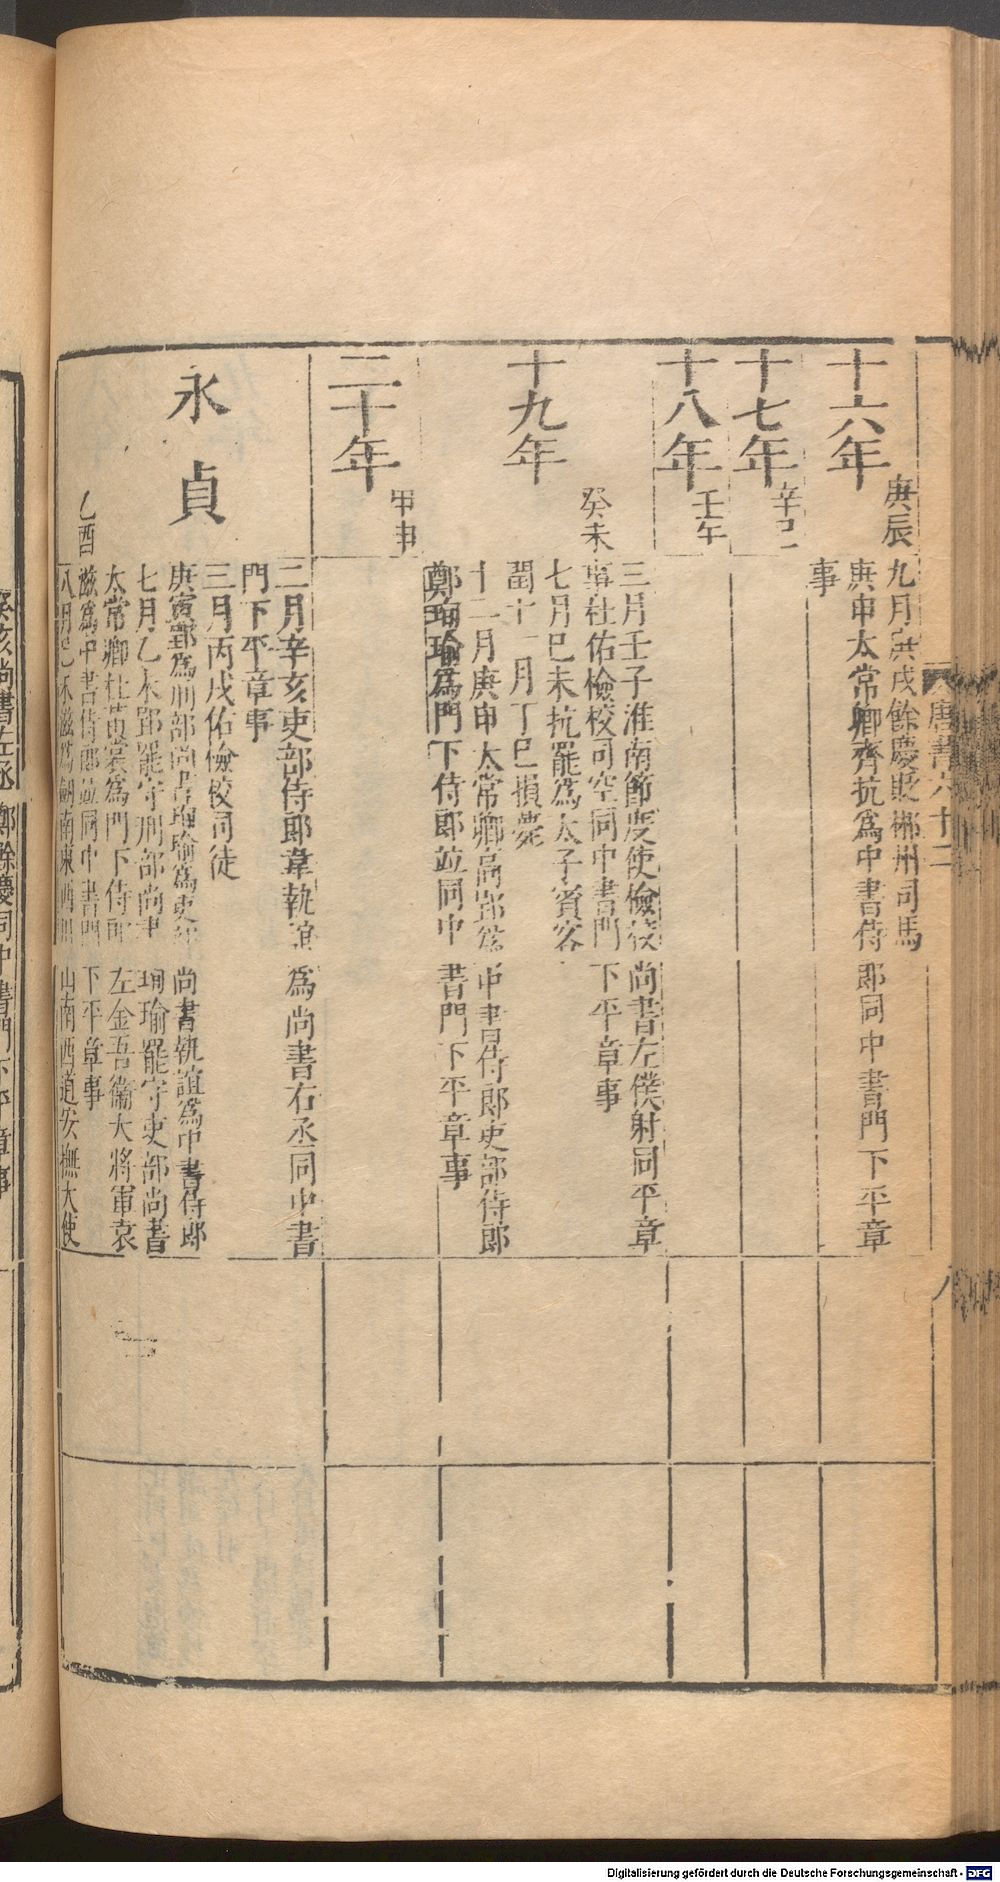 唐書六十二
八
十六年
庚辰
九月庚戌餘慶貶郴州司馬
庚申太常卿齊抗為中書侍郎同中書門下平章
事
十七年
辛巳
十八年
壬午
十九年
癸未
三月壬子淮南節度使檢校尚書左僕射同平章
事杜佑檢校司空同中書門下平章事
七月己未抗罷為太子賓客
閏十一月丁巳損薨
十二月庚申太常卿高郢為中書侍郎吏部侍郎
鄭珣瑜為門下侍郎並同中書門下平章事
二十年
甲申
永貞
乙酉
二月辛亥吏部侍郎韋執誼為尚書右丞同中書
門下平章事
三月丙戌佑檢校司徒
庚寅郢為刑部尚書珣瑜為吏部尚書執誼為中書侍郎
七月乙未郢罷守刑部尚書珣瑜罷守吏部尚書
太常卿杜黃裳為門下侍郎左金吾衞大將軍袁
滋為中書侍郎並同中書門下平章事
八月己未滋為劒南東西川山南西道安撫大使
癸亥尚書左丞鄭餘慶同中書門下平章事
Digitalisierung gefördert durch die Deutsche Forschungsgemeinschaft - DFG